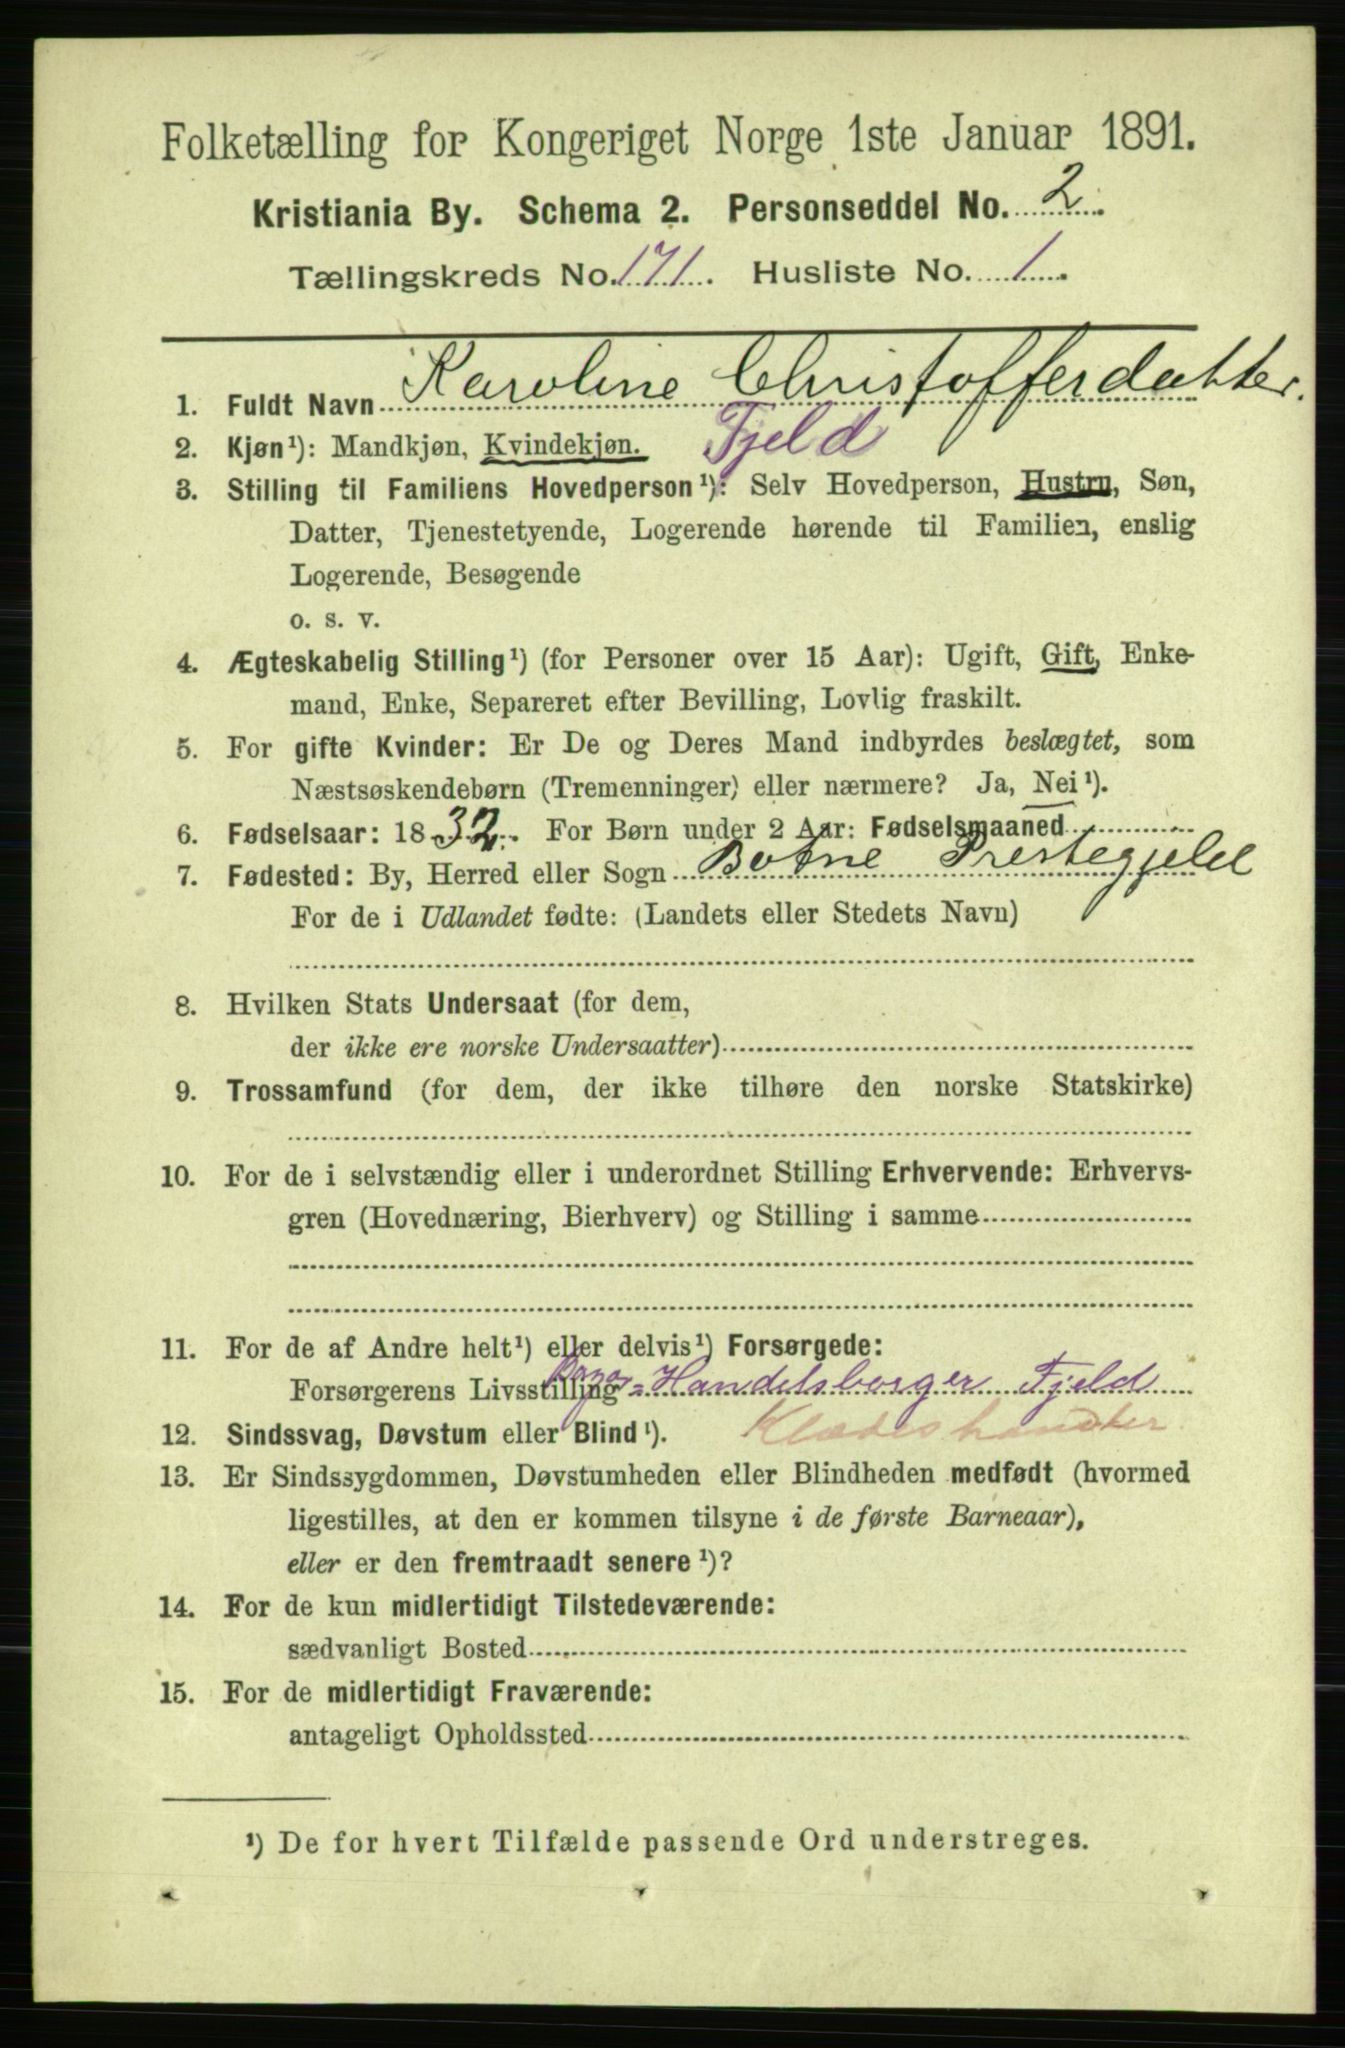 Folketælling for Kongeriget Norge 1ste Januar 1891.
Kristiania By. Schema 2. Personseddel No. 2.
Tællingskreds No. 171. Husliste No. 1.
1. Fuldt Navn Karoline Christofferdatter.
2. Kjøn¹): Mandkjøn, Kvindekjøn. Fjeld
3. Stilling til Familiens Hovedperson¹): Selv Hovedperson, Hustru, Søn,
Datter, Tjenestetyende, Logerende hørende til Familien, enslig
Logerende, Besøgende
o. s. v.
4. Ægteskabelig Stilling¹) (for Personer over 15 Aar): Ugift, Gift, Enke-
mand, Enke, Separeret efter Bevilling, Lovlig fraskilt.
5. For gifte Kvinder: Er De og Deres Mand indbyrdes beslægtet, som
Næstsøskendebørn (Tremenninger) eller nærmere? Ja, Nei¹).
6. Fødselsaar: 1832. For Børn under 2 Aar: Fødselsmaaned
7. Fødested: By, Herred eller Sogn Botne Prestegjeld
For de i Udlandet fødte: (Landets eller Stedets Navn)
8. Hvilken Stats Undersaat (for dem,
der ikke ere norske Undersaatter)
9. Trossamfund (for dem, der ikke tilhøre den norske Statskirke)
10. For de i selvstændig eller i underordnet Stilling Erhvervende: Erhvervs-
gren (Hovednæring, Bierhverv) og Stilling i samme
11. For de af Andre helt¹) eller delvis¹) Forsørgede:
Forsørgerens Livsstilling Handelsborger Fjeld
12. Sindssvag, Døvstum eller Blind¹). Klædeshandler
13. Er Sindssygdommen, Døvstumheden eller Blindheden medfødt (hvormed
ligestilles, at den er kommen tilsyne i de første Barneaar),
eller er den fremtraadt senere¹)?
14. For de kun midlertidigt Tilstedeværende:
sædvanligt Bosted
15. For de midlertidigt Fraværende:
antageligt Opholdssted
¹) De for hvert Tilfælde passende Ord understreges.